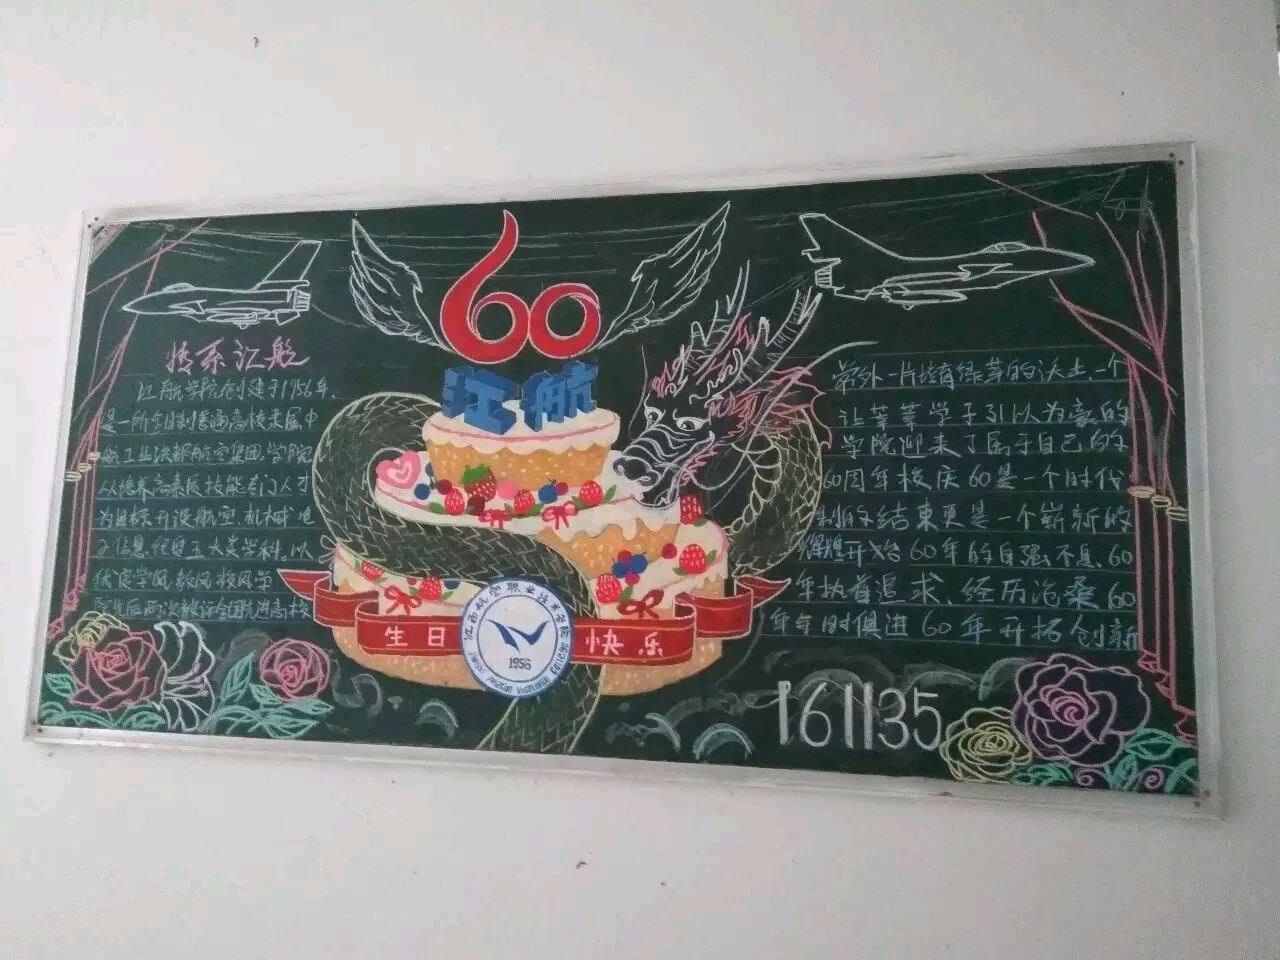 60
江航
情系江航
江航学院创建于1956年,
是一所全日制普通高校隶属中
航工业洪都航空集团.学院
以培养高素质技能专门人才
为目标开设航空.机械.电
子信息.经贸五大类学科.以
优良学风.教风.校风学
院先后两次被评全国先进高校
生日
快乐
江西航空职业技术学院
1956
Jiangxi Aviational College
常外一片培育绿草的沃土.一个
让莘莘学子引以为豪的
学院迎来了属于自己的
60周年校庆60是一个时代
的结束更是一个崭新的
辉煌开始60年的自强不息.60
年执着追求、经历沧桑60
年与时俱进60年开拓创新
161135